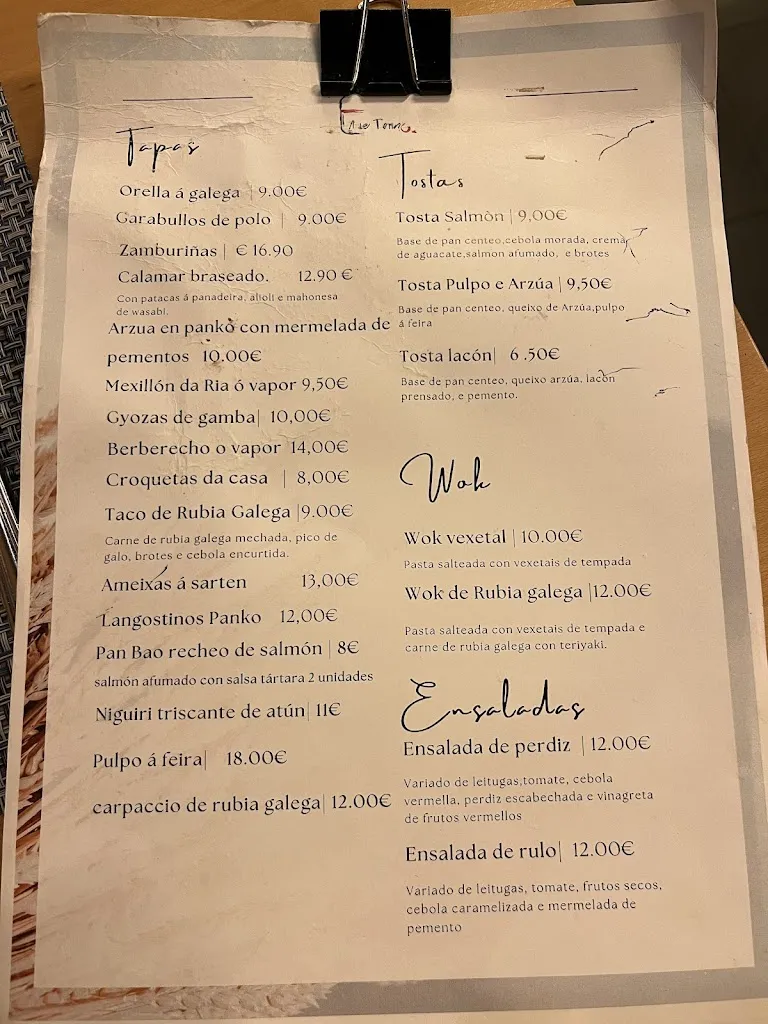 Tapas
Orella á galega | 9.00€
Garabullos de polo | 9.00€
Zamburiñas | € 16.90
Calamar braseado. 12.90 €
Con patacas á panadeira, alioli e mahonesa
de wasabi.
Arzua en panko con mermelada de
pementos 10.00€
Mexillón da Ria ó vapor 9,50€
Gyozas de gamba| 10,00€
Berberecho o vapor 14,00€
Croquetas da casa | 8,00€
Taco de Rubia Galega |9.00€
Carne de rubia galega mechada, pico de
galo, brotes e cebola encurtida.
Ameixas á sarten 13,00€
Langostinos Panko 12,00€
Pan Bao recheo de salmón | 8€
salmón afumado con salsa tártara 2 unidades
Niguiri triscante de atún| 11€
Pulpo á feira| 18.00€
carpaccio de rubia galega| 12.00€
Tostas
Tosta Salmòn | 9,00€
Base de pan centeo,cebola morada, crema
de aguacate,salmon afumado, e brotes
Tosta Pulpo e Arzúa | 9,50€
Base de pan centeo, queixo de Arzúa,pulpo
á feira
Tosta lacón| 6 .50€
Base de pan centeo, queixo arzúa, lacón
prensado, e pemento.
Wok
Wok vexetal | 10.00€
Pasta salteada con vexetais de tempada
Wok de Rubia galega |12.00€
Pasta salteada con vexetais de tempada e
carne de rubia galega con teriyaki.
Ensaladas
Ensalada de perdiz | 12.00€
Variado de leitugas,tomate, cebola
vermella, perdiz escabechada e vinagreta
de frutos vermellos
Ensalada de rulo| 12.00€
Variado de leitugas, tomate, frutos secos,
cebola caramelizada e mermelada de
pemento